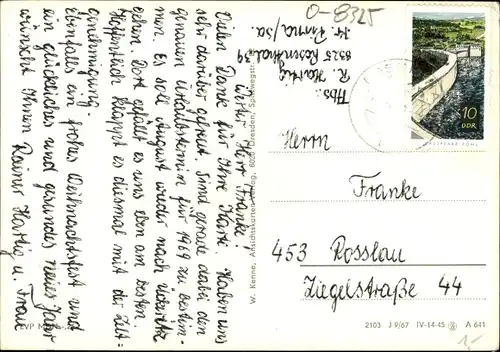 Werter Herr Franke!
Vielen Dank für Ihre Karte. Haben uns
sehr darüber gefreut. Sind gerade dabei den
genauen Urlaubstermin für 1969 zu bestim-
men. Es soll August wieder nach
gehen. Dort gefällt es uns eben am besten.
Hoffentlich klappt es diesmal mit der Zelt-
genehmigung.
Ebenfalls ein frohes Weihnachtsfest und
ein glückliches und gesundes neues Jahr
wünscht Ihnen Rainer Hartig u. Frau
W. Kenne, Ansichtskartenverlag, 8020 Dresden,
O-8325
Abs.:
R. Hartig
8325 Rosenthal 39
Kr. Pirna/Sa.
10
DDR
Herrn
Franke
453 Rosslau
Ziegelstraße 44
2103 J 9/67 IV-14-45 A 641
1,-